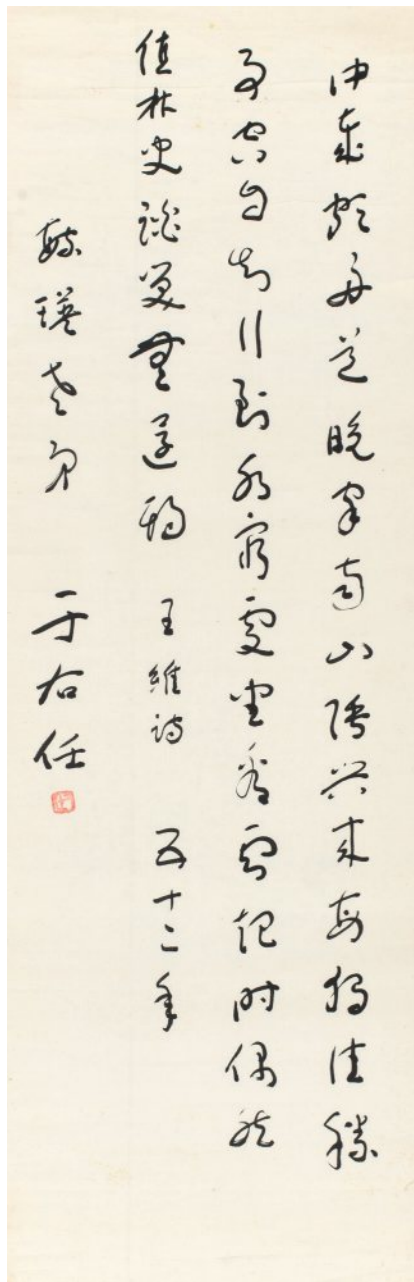 中歲頗好道晚家南山陲興來每獨往勝
事空自知行到水窮處坐看雲起時偶然
值林叟談笑無還期 王維詩 五十二年
毓瑛老弟 于右任